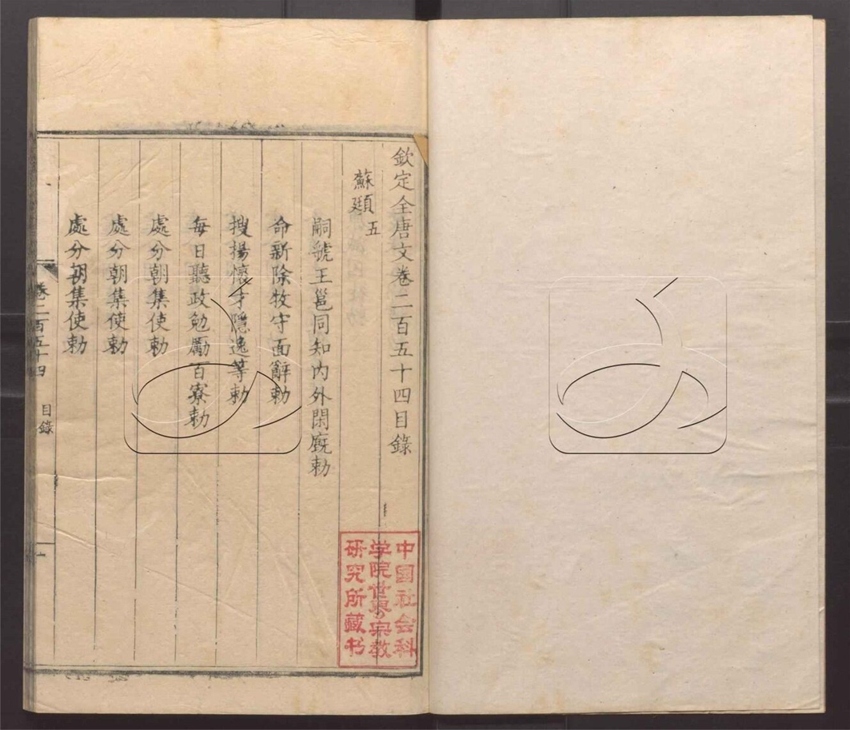 欽定全唐文卷二百五十四目錄
蘇頲五
嗣虢王邕同知內外閑廐勅
命新除牧守面辭勅
搜揚懷才隱逸等勅
每日聽政勉勵百寮勅
處分朝集使勅
處分朝集使勅
處分朝集使勅
卷二百五十四 目錄 一
中国社会科
学院世界宗教
研究所藏书